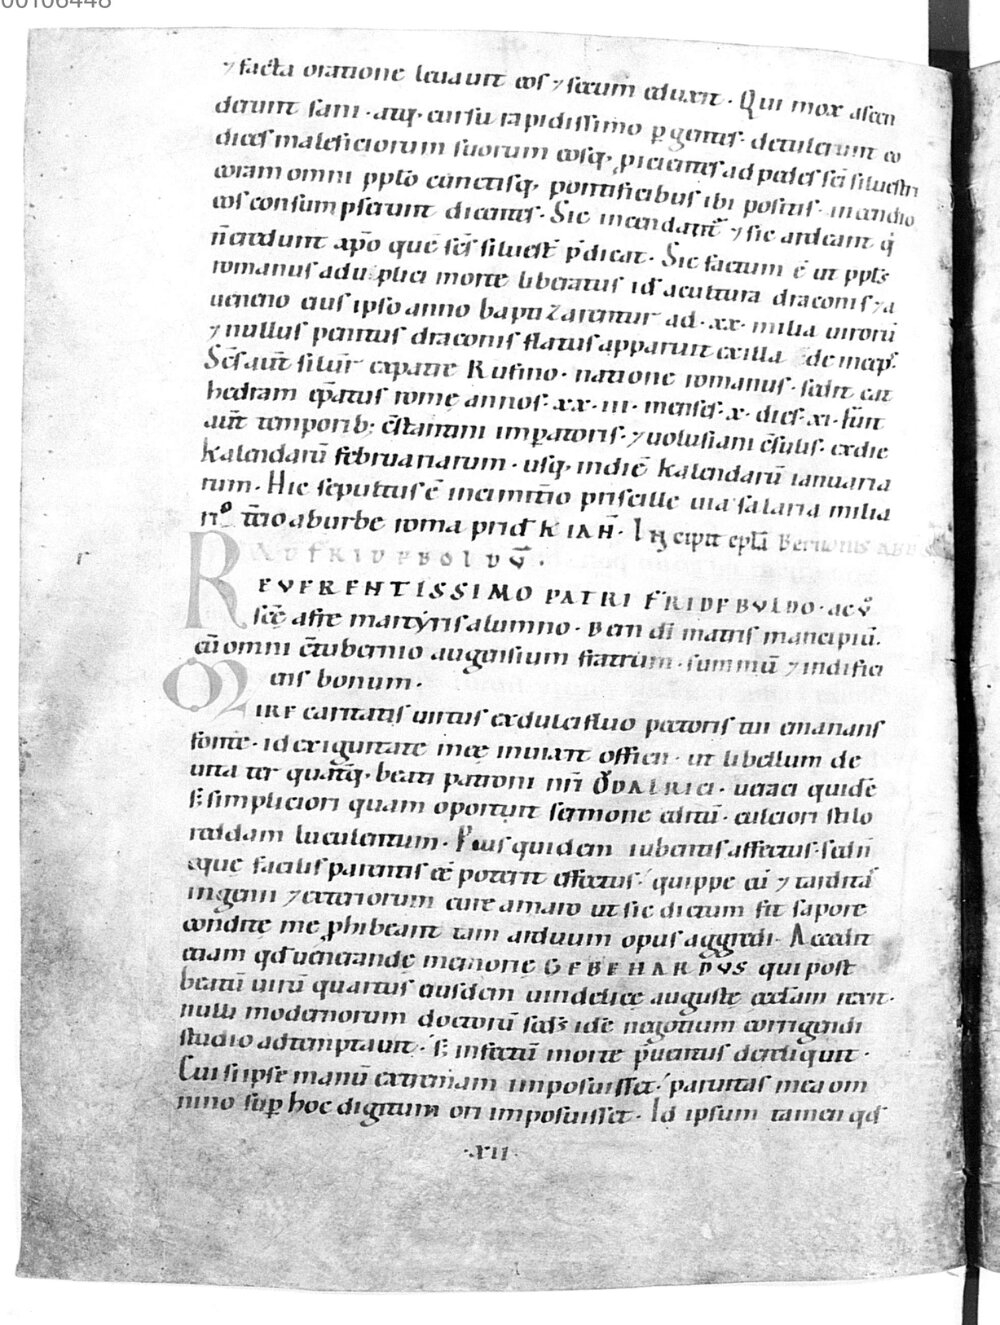 00106448
⁊ facta oratione leuauit eos ⁊ secum eduxit · Qui mox ascen
derunt sani · atq; cursu rapidissimo p̱gentes · detulerunt co
dices maleficiorum suorum eosq; ꝓicientes ad pedes sc̄i siluestri
coram omni ppl̄o cunctisq; pontificibus ibi positis · incendio
eos consumpserunt dicentes · Sic incendant̄ ⁊ sic ardeant q́
n̄ credunt xp̄o quē sc̄s siluest̄ p̄dicat · Sic factum ē ut ppl̄s
romanus a duplici morte liberatus id̄ a cultura draconis ⁊ a
ueneno eius ipso anno baptizarentur ad · xx · milia uirorū
⁊ nullus penitus draconis flatus apparuit ex illa
Sc̄s aut̄ silur̄ ex patre Rufino · natione romanus · sedit cat
hedram ep̄atus romę annos · xx · iii · menses · x · dies · xi · fuit
aut̄ temporib; c̄stantini imp̱atoris · ⁊ uolusiani c̄sulis · ex die
kalendarū februariarum · usq; in diē kalendarū ianuaria
rum · Hic sepultus ē in cimit̄io priscille uia salaria milia
rio t̄tio ab urbe roma prid̄ K IAN̄ · Incipit epl̄a Bernonis ABB
AD FRIDEBOLDV̄ ·
REVERENTISSIMO PATRI FRIDEBVLDO · ac
sc̄ę afre martẏris alumno · Bern dī matris mancipiū ·
cū omni c̄tubernio augensium fratrum · summū ⁊ indifici
ens bonum ·
MIRE caritatis uirtus ex dulcifluo pectoris tui emanans
fonte · id exiguitate meę iniunxit officii · ut libellum de
uita
 beati patroni nr̄i OVDALRICI · ueraci quidē
s; simpliciori quam oportuit sermone editū · cultiori stilo
redderem luculentum · Pius quidem iubentis affectus · sed n̄
eque facilis parentis eē poterit effectus · quippe cū ⁊ tardita
ingenii ⁊ exteriorum cure amaro ut sic dictum sit sapore
condite me ꝓhibeant tam arduum opus aggredi · Accedit
etiam qd̄ uenerandę memorię GEBEHARDVS qui post
beatū uirū quartus eiusdem uindelicę augustę ced̄am rexit ·
nulli modernorum doctorū sed̄s ide negotium corrigendi
studio adtemptauit · s; infectū morte p̄uentus dereliquit ·
Cui si ipse manū extremam imposuisset · paruitas mea om
nino sup̱ hoc digitum ori imposuisset · Id ipsum tamen qd̄
· XII ·